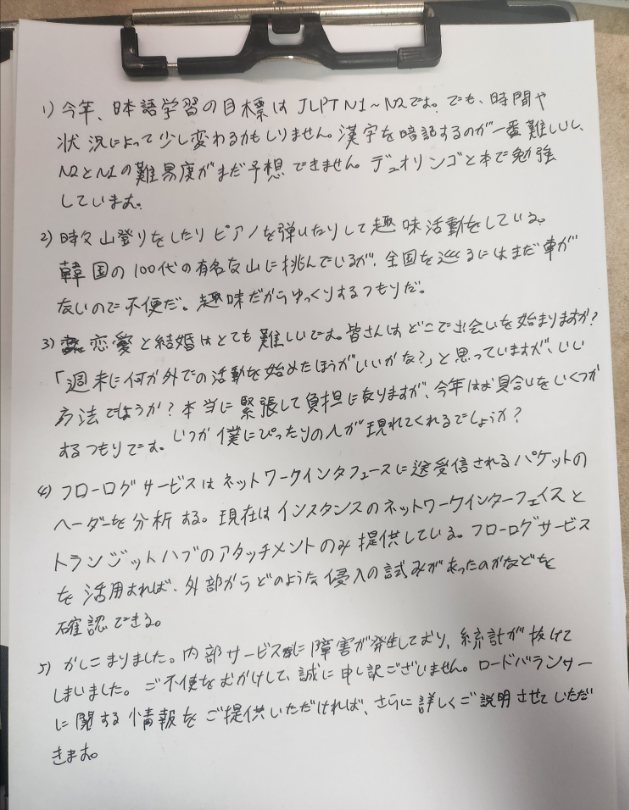 1) 今年、日本語学習の目標は JLPT N1~N2です。でも、時間や
状況によって少し変わるかもしりません。漢字を暗記するのが一番難しいし、
N2とN1の難易度がまだ予想できません。デュオリンゴと本で勉強
しています。
2) 時々山登りをしたりピアノを弾いたりして趣味活動をしている。
韓国の100代の有名な山に挑んでいるが、全国を巡るにはまだ車が
ないので不便だ。趣味だからゆっくりするつもりだ。
3) 恋愛と結婚はとても難しいです。皆さんはどこで出会いを始まりますか?
「週末に何か外での活動を始めたほうがいいかな?」と思っていますが、いい
方法でしょうか? 本当に緊張して負担になりますが、今年はお見合いをいくつか
するつもりです。いつか僕にぴったりの人が現れてくれるでしょうか?
4) フローログサービスはネットワークインタフェースに送受信されるパケットの
ヘーダーを分析する。現在はインスタンスのネットワークインターフェイスと
トランジットハブのアタッチメントのみ提供している。フローログサービス
を活用すれば、外部からどのような侵入の試みがあったのかなどを
確認できる。
5) かしこまりました。内部サービスに障害が発生しており、統計が抜けて
しまいました。ご不便をおかけして、誠に申し訳ございません。ロードバランサー
に関する情報をご提供いただければ、さらに詳しくご説明させていただ
きます。